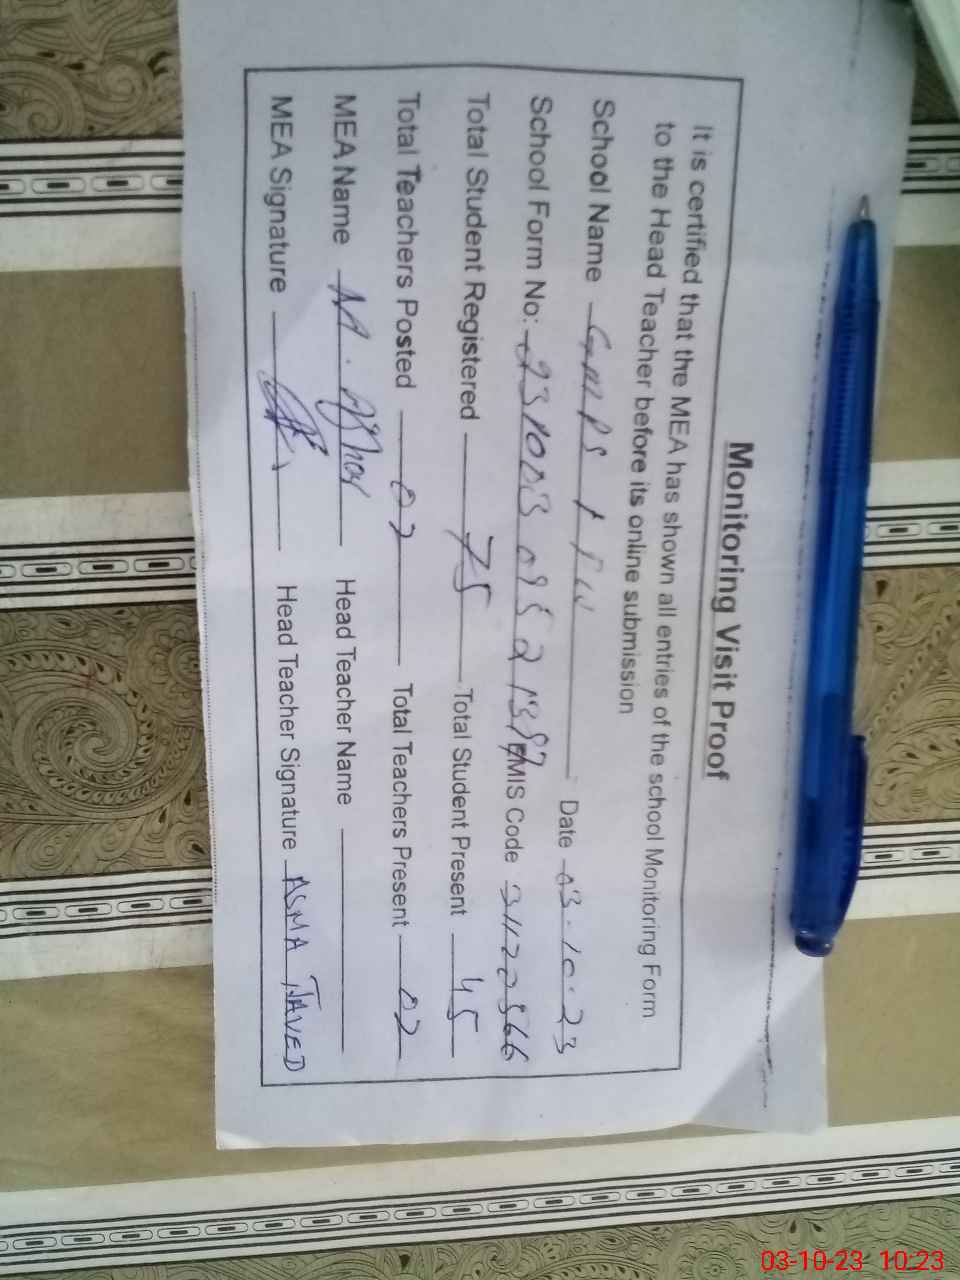 Monitoring Visit Proof
It is certified that the MEA has shown all entries of the school Monitoring Form
to the Head Teacher before its online submission
School Name Date 03.10.23
School Form No: EMIS Code 31120566
Total Student Registered 75 Total Student Present 45
Total Teachers Posted 02 Total Teachers Present 02
MEA Name M. Head Teacher Name
MEA Signature Head Teacher Signature ASMA JAVED
03-10-23 10:23